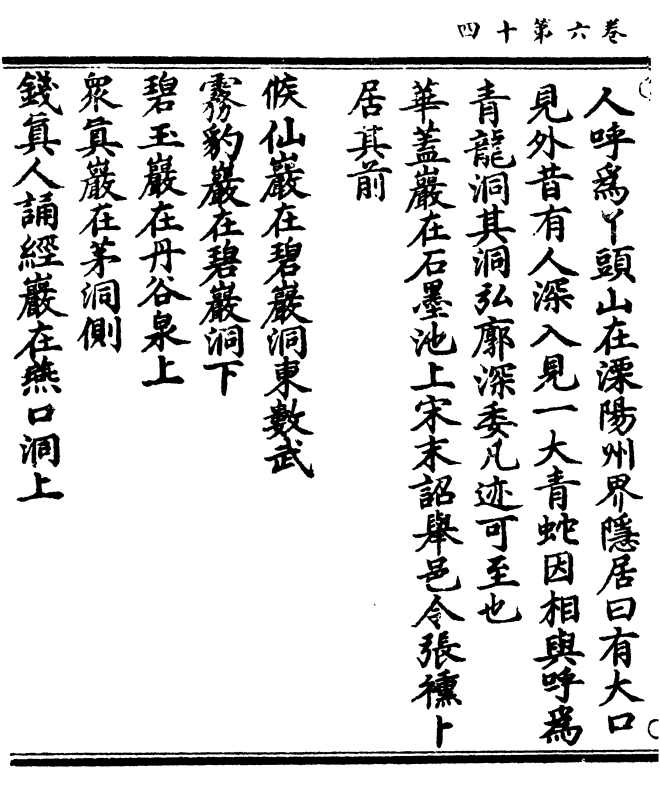 卷六第十四
人呼爲丫頭山在溧陽州界隱居曰有大口
見外昔有人深入見一大青蛇因相與呼爲
青龍洞其洞弘廓深委凡迹可至也
華蓋巖在石墨池上宋末詔舉邑令張𧝬卜
居其前
候仙巖在碧巖洞東數武
霧豹巖在碧巖洞下
碧玉巖在丹谷泉上
衆眞巖在茅洞側
錢眞人誦經巖在燕口洞上